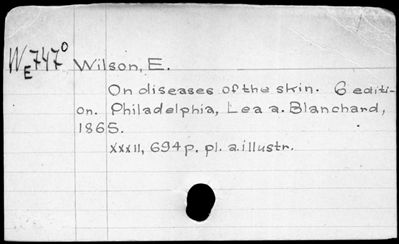 WE747° Wilson, E.
On diseases of the skin. 6 editi-
on. Philadelphia, Lea a. Blanchard,
1865.
xxxII, 694 p. pl. a. illustr.